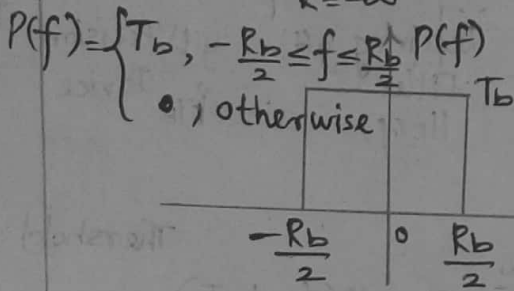 P(f)={T_b, -R_b/2 ≤ f ≤ R_b/2
0, otherwise
P(f)
T_b
-R_b/2 0 R_b/2